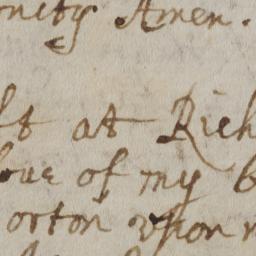 onity Amen.
ft at Rich
loue of my b
orton vpon